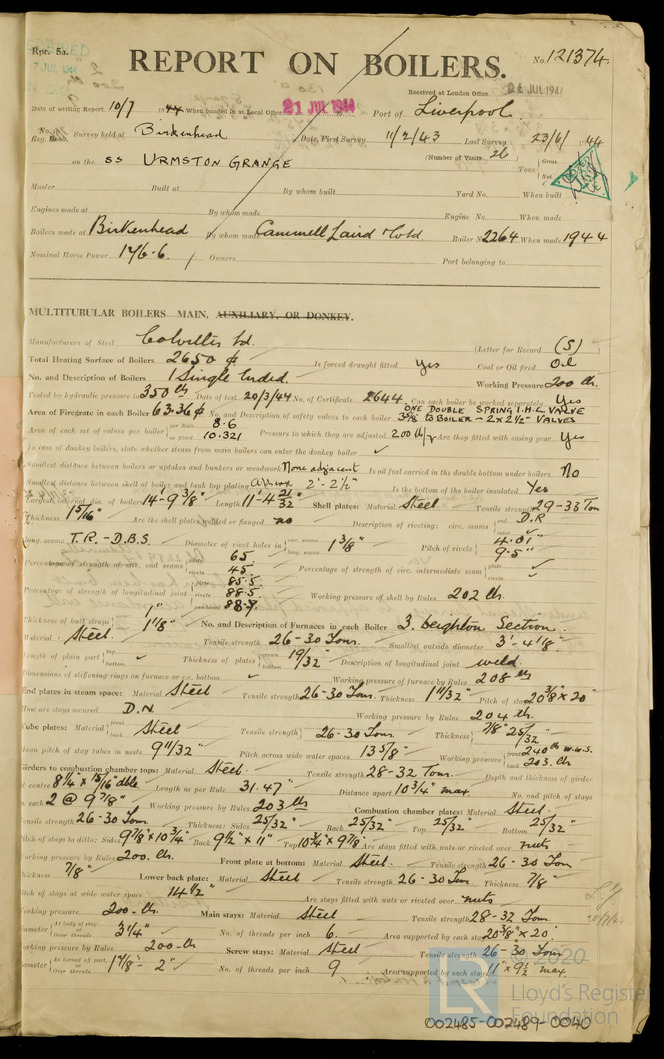 Rpt. 5a.
REPORT ON BOILERS.
No. 121374
Received at London Office 26 JUL 1944
Date of writing Report 10/7 1944 When handed in at Local Office 21 JUL 1944 Port of Liverpool
No. in Reg. Book. Survey held at Birkenhead Date, First Survey 11/2/43 Last Survey 23/6/1944
on the SS URMSTON GRANGE (Number of Visits 26) Tons Gross Net
Master Built at By whom built Yard No. When built
Engines made at By whom made Engine No. When made
Boilers made at Birkenhead By whom made Cammell Laird & Co Ltd. Boiler No. 2264 When made 1944
Nominal Horse Power Owners Port belonging to
MULTITUBULAR BOILERS MAIN, AUXILIARY, OR DONKEY.
Manufacturers of Steel Colvilles Ltd. (Letter for Record (S))
Total Heating Surface of Boilers 2650 Is forced draught fitted Yes Coal or Oil fired Oil
No. and Description of Boilers 1 Single Ended. Working Pressure 200 lb.
Tested by hydraulic pressure to 350 lb Date of test 20/3/44 No. of Certificate 2644 Can each boiler be worked separately Yes
Area of Firegrate in each Boiler 63.36 No. and Description of safety valves to each boiler ONE DOUBLE SPRING I.H.L VALVE 3 5/8" TO BOILER - 2 x 2 1/2" VALVES
Area of each set of valves per boiler per Rule 8.6 as fitted 10.321 Pressure to which they are adjusted 200 lb Are they fitted with easing gear Yes
In case of donkey boilers, state whether steam from main boilers can enter the donkey boiler ✓
Smallest distance between boilers or uptakes and bunkers or woodwork None adjacent Is oil fuel carried in the double bottom under boilers No
Smallest distance between shell of boiler and tank top plating 2'-2 1/2" Is the bottom of the boiler insulated Yes
Largest internal dia. of boiler 14'-9 3/8" Length 11'-4 21/32" Shell plates: Material Steel Tensile strength 29-33 Ton
Thickness 1 5/16" Are the shell plates welded or flanged no Description of riveting: circ. seams end D.R inter ✓
long. seams T.R.-D.B.S. Diameter of rivet holes in circ. seams long. seams 1 3/8" Pitch of rivets 4.01" 9.5"
Percentage of strength of circ. end seams 65 45 Percentage of strength of circ. intermediate seam ✓
Percentage of strength of longitudinal joint 85.5 88.5 Working pressure of shell by Rules 202 lb.
Thickness of butt straps outer 1" inner 1 1/8" No. and Description of Furnaces in each Boiler 3. Deighton Section
Material Steel. Tensile strength 26-30 Tons. Smallest outside diameter 3'-4 1/8"
Length of plain part top bottom ✓ Thickness of plates crown bottom 19/32" Description of longitudinal joint weld.
Dimensions of stiffening rings on furnace or c.c. bottom ✓ Working pressure of furnace by Rules 208 lb
End plates in steam space: Material Steel Tensile strength 26-30 Tons. Thickness 1 11/32" Pitch of stays 20 3/8 x 20"
How are stays secured D.N Working pressure by Rules 204 lb.
Tube plates: Material front back Steel Tensile strength 26-30 Tons. Thickness 7/8" 25/32"
Mean pitch of stay tubes in nests 9 11/32" Pitch across wide water spaces 13 5/8" Working pressure front 240 lb w.w.s. back 203 lb.
Girders to combustion chamber tops: Material Steel. Tensile strength 28-32 Tons. Depth and thickness of girder
at centre 8 1/4" x 15/16" dble Length as per Rule 31.47" Distance apart 10 3/4" max No. and pitch of stays
in each 2 @ 9 7/8" Working pressure by Rules 203 lb Combustion chamber plates: Material Steel.
Tensile strength 26-30 Tons Thickness: Sides 25/32" Back 25/32" Top 25/32" Bottom 25/32"
Pitch of stays to ditto: Sides 9 7/8" x 10 3/4" Back 9 1/2" x 11" Top 10 3/4" x 9 7/8 Are stays fitted with nuts or riveted over nuts
Working pressure by Rules 200. lb. Front plate at bottom: Material Steel. Tensile strength 26-30 Ton
Thickness 7/8" Lower back plate: Material Steel Tensile strength 26-30 Tons Thickness 7/8"
Pitch of stays at wide water space 14 1/2" Are stays fitted with nuts or riveted over nuts
Working pressure 200. lb. Main stays: Material Steel Tensile strength 28-32 Tons.
Diameter At body of stay or Over threads 3 1/4" No. of threads per inch 6. Area supported by each stay 20 3/8" x 20"
Working pressure by Rules 200 lb Screw stays: Material Steel Tensile strength 26-30 Tons.
Diameter At turned off part, or Over threads 1 7/8"-2" No. of threads per inch 9 Area supported by each stay 11" x 9 1/2 max.
© 2020
Lloyd's Register
Foundation
002485-002489-0040